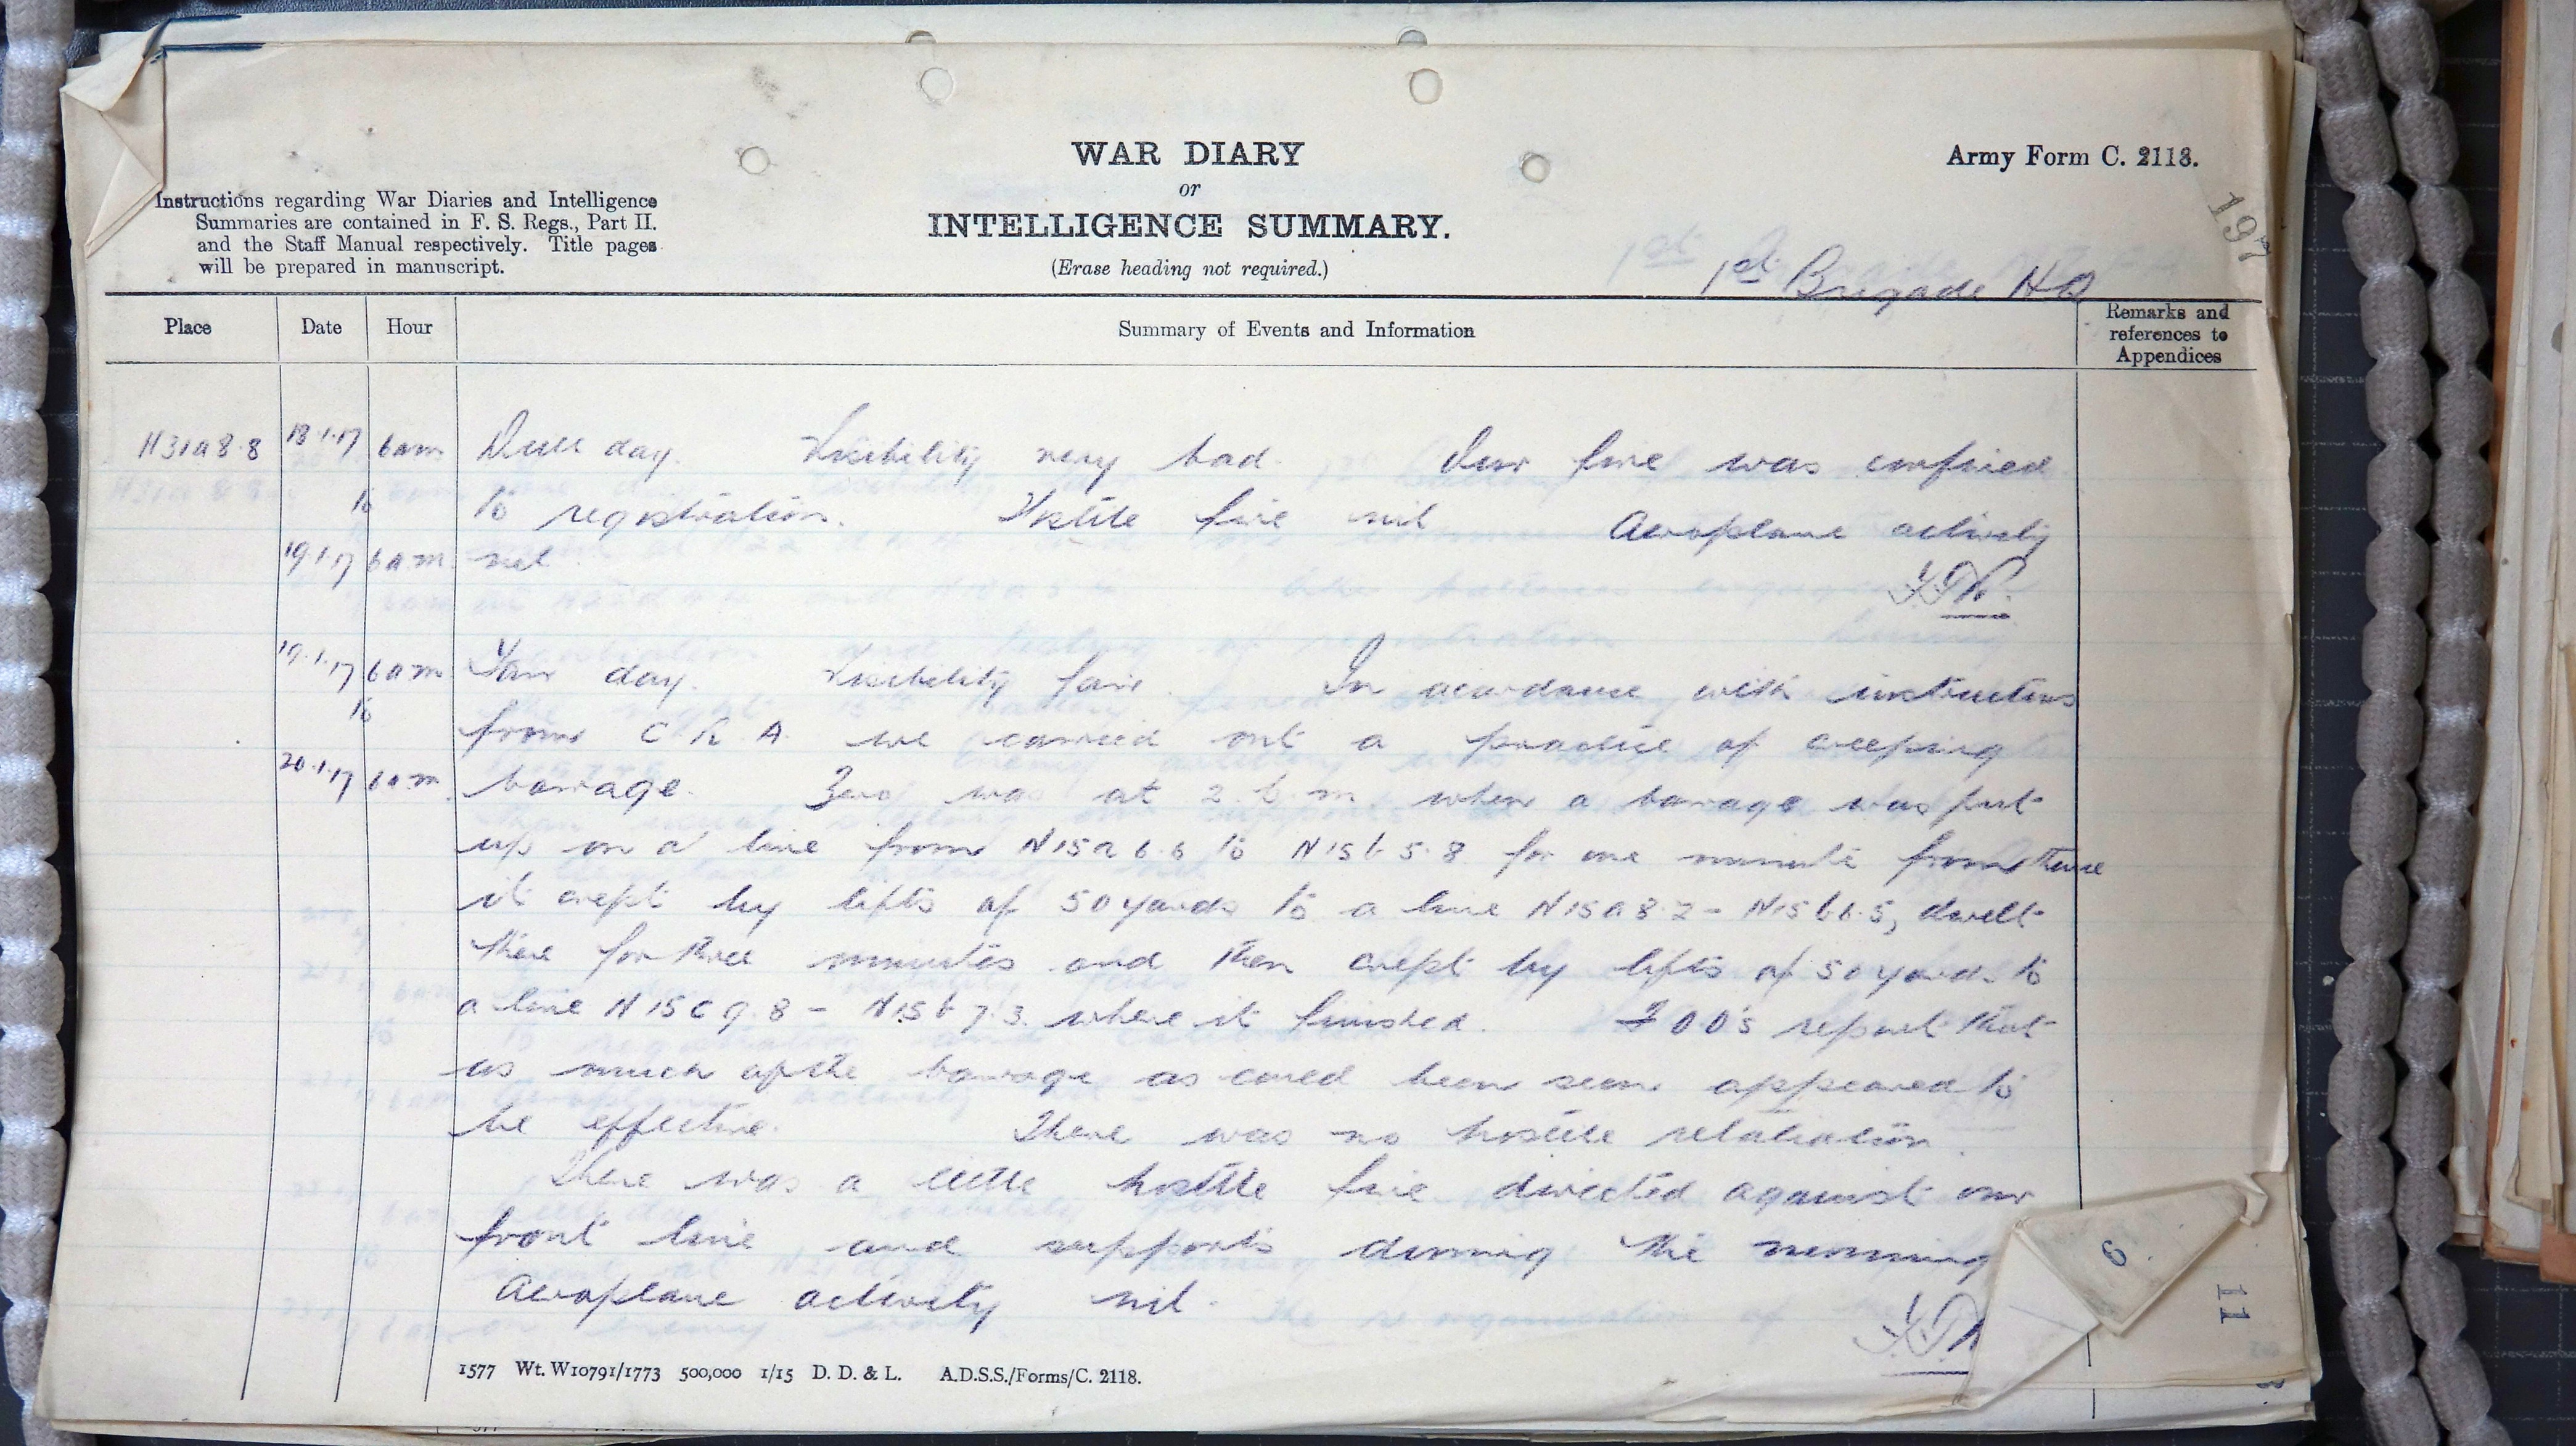 WAR DIARY
or
INTELLIGENCE SUMMARY.
(Erase heading not required.)
Army Form C. 2118.
Instructions regarding War Diaries and Intelligence
Summaries are contained in F. S. Regs., Part II.
and the Staff Manual respectively. Title pages
will be prepared in manuscript.
197
1st Brigade HQ
Place Date Hour Summary of Events and Information Remarks and references to Appendices
H31a8.8 18.1.17 6am Dull day. Visibility very bad. Our fire was confined
to to registration. Hostile fire nil Aeroplane activity
19.1.17 6am nil.
19.1.17 6am Fair day. Visibility fair. In accordance with instructions
to from C R A. we carried out a practice of creeping
20.1.17 6am barrage. Zero was at 2 p.m. when a barrage was put
up on a line from N15a 6.6 to N15b 5.8 for one minute from thence
it crept by lifts of 50 yards to a line N15a8.2 - N15b6.5, dwelt
there for three minutes and then crept by lifts of 50 yards to
a line N15c9.8 - N15b7.3. where it finished. FOO's report that
as much of the barrage as could been seen appeared to
be effective. There was no hostile retaliation.
There was a little hostile fire directed against our
front line and supports during the morning
Aeroplane activity nil.
6
11
1577 Wt. W10791/1773 500,000 1/15 D. D. & L. A.D.S.S./Forms/C. 2118.